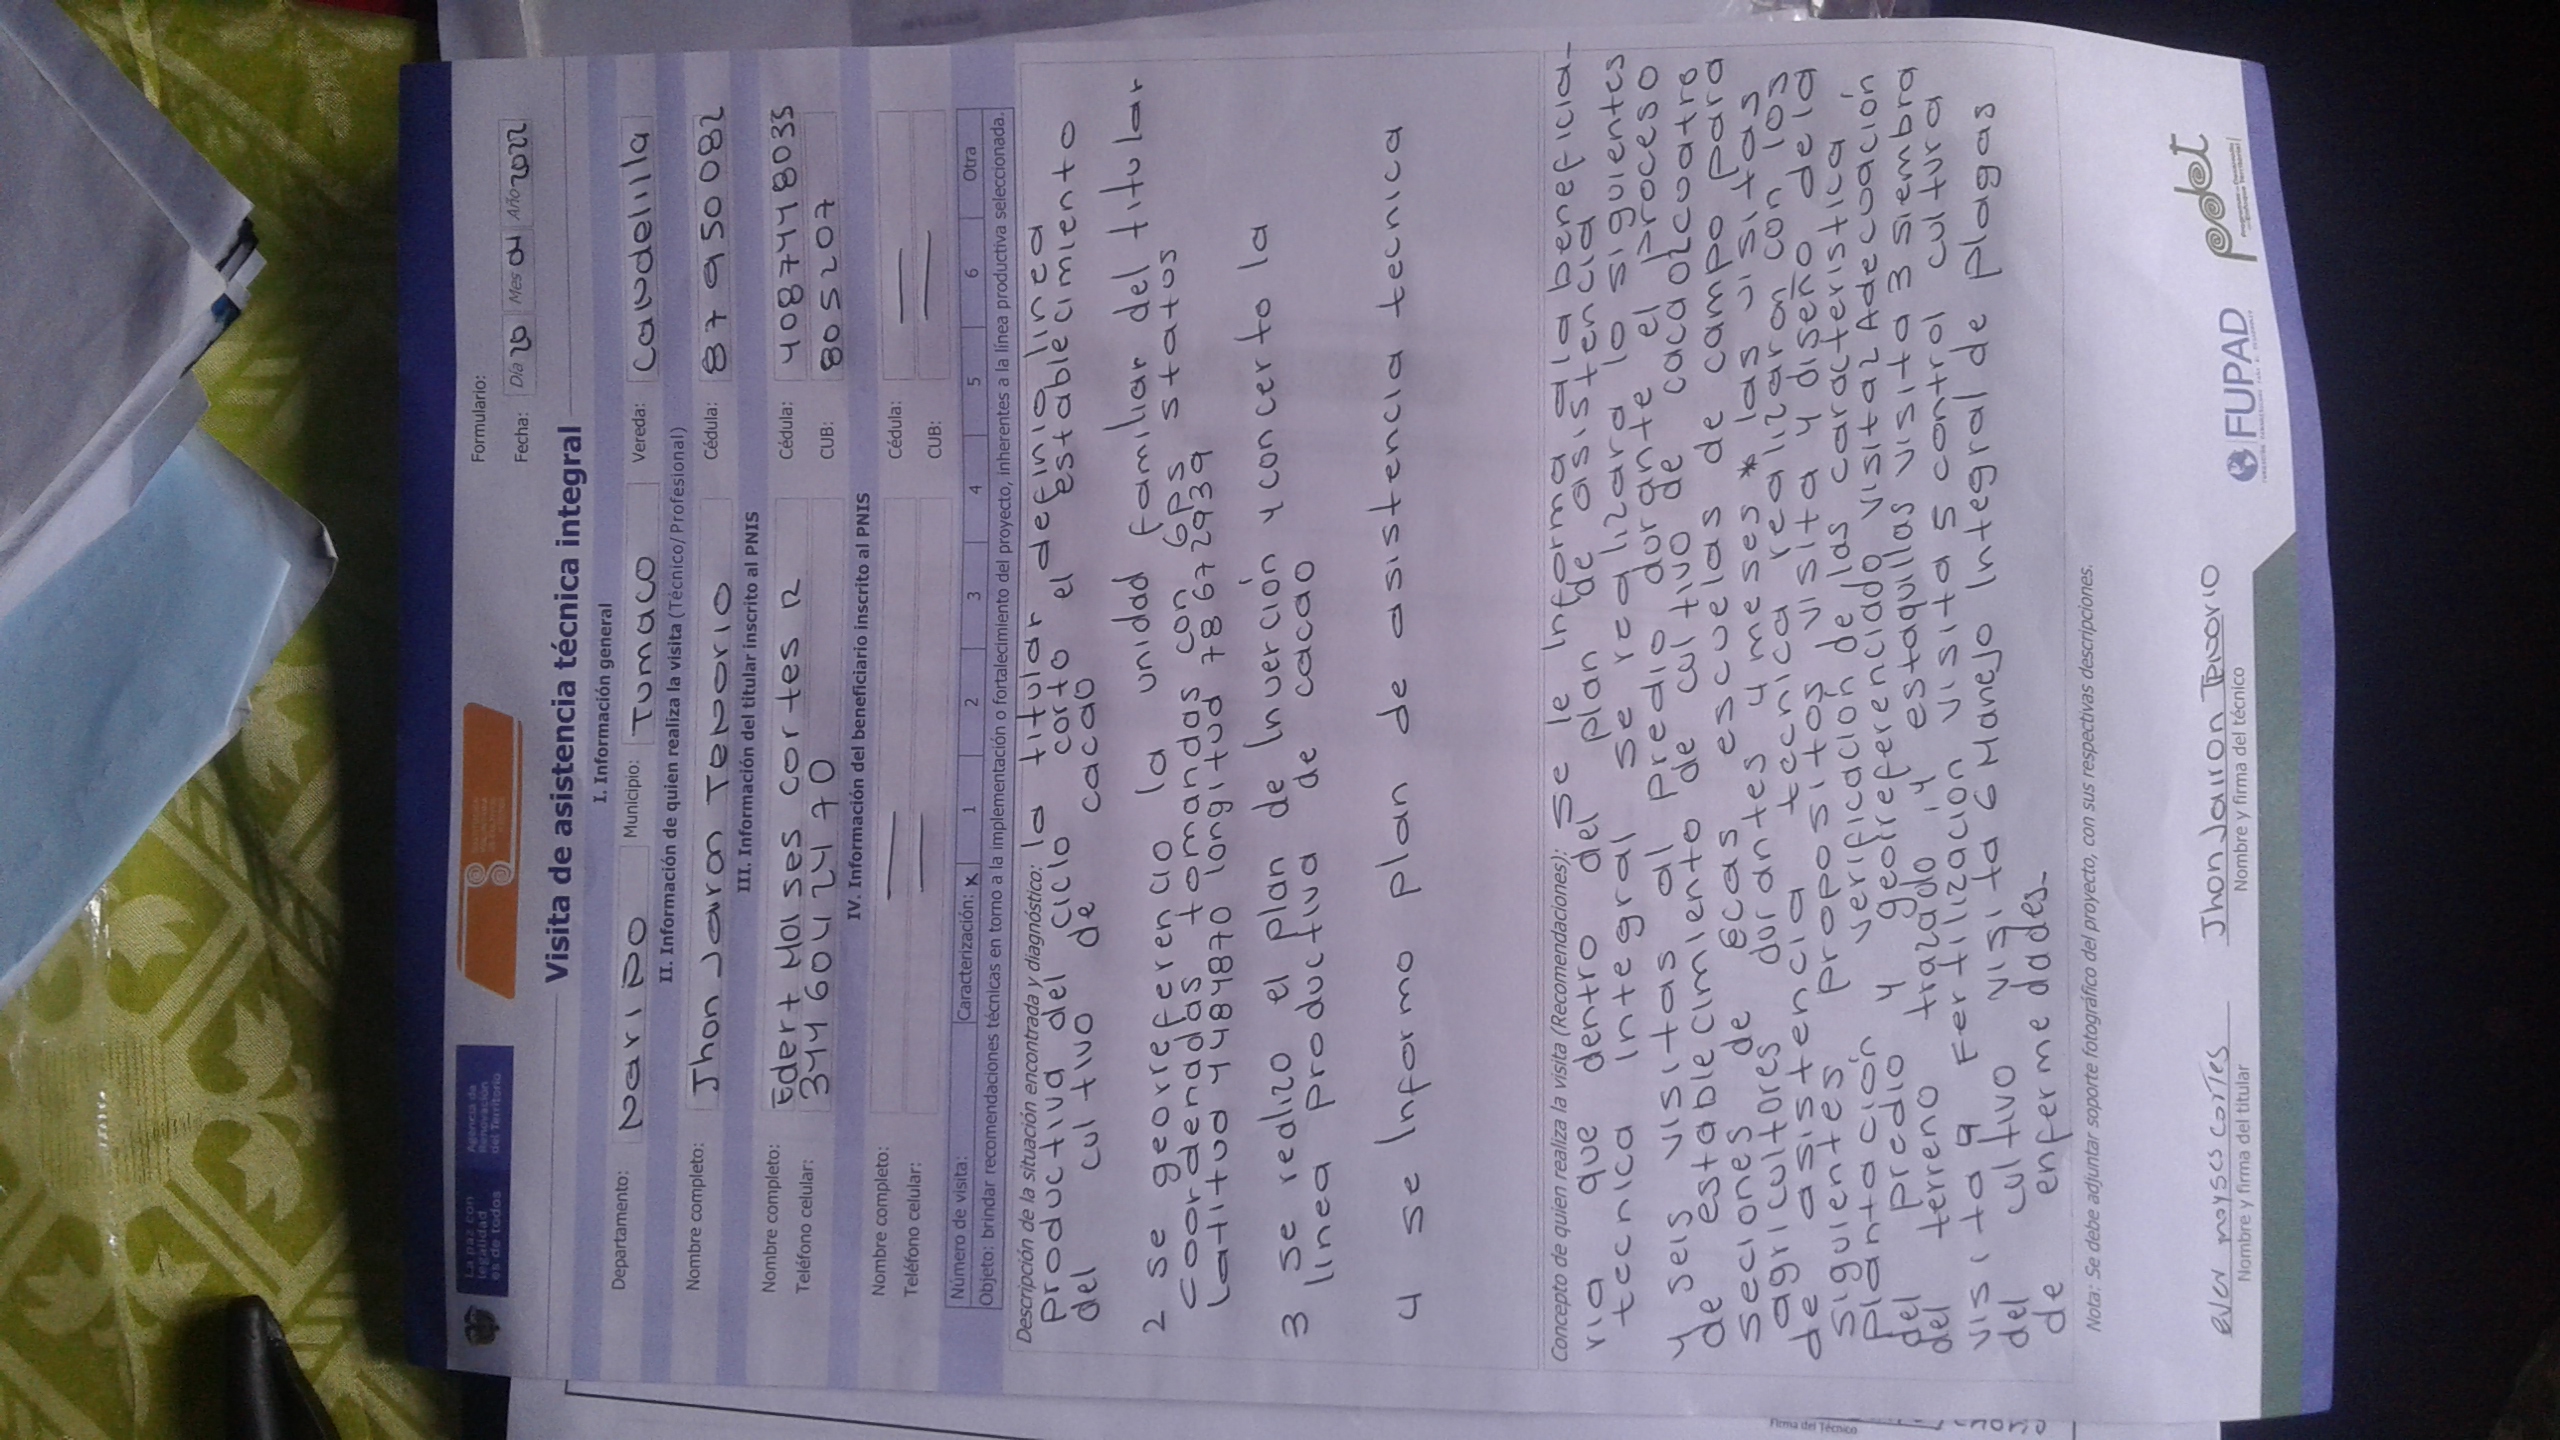 La paz con
legalidad
es de todos
Agencia de
Renovación
del Territorio
Formulario:
Fecha: Día 20 Mes 01 Año 2022
Visita de asistencia técnica integral
I. Información general
Departamento: Nariño Municipio: Tumaco Vereda: Candelilla
II. Información de quien realiza la visita (Técnico/ Profesional)
Nombre completo: Jhon Jairon Tenorio Cédula: 87950082
III. Información del titular inscrito al PNIS
Nombre completo: Edert Moises cortes R Cédula: 4087448035
Teléfono celular: 3446042470 CUB: 805207
IV. Información del beneficiario inscrito al PNIS
Nombre completo: Cédula:
Teléfono celular: CUB:
Número de visita: Caracterización: x 1 2 3 4 5 6 Otra
Objeto: brindar recomendaciones técnicas en torno a la implementación o fortalecimiento del proyecto, inherentes a la línea productiva seleccionada.
Descripción de la situación encontrada y diagnóstico: la titular definio linea
productiva del ciclo corto el establecimiento
del cultivo de cacao
2 se georreferencio la unidad familiar del titular
coordenadas tomandas con Gps status
Latitud 4484870 longitud 78672939
3 se realizo el plan de Inverción y concerto la
linea productiva de cacao
4 se Informo plan de asistencia tecnica
Concepto de quien realiza la visita (Recomendaciones): se le Informa a la beneficia-
ria que dentro del plan de asistencia
tecnica Integral se realizara lo siguientes
y seis visitas al predio durante el proceso
de establecimiento de cultivo de cacao cuatro
seciones de Ecas escuelas de campo para
agricultores durantes 4 meses * las visitas
de asistencia tecnica realizaron con los
siguientes propositos visita y diseño de la
plantación y verificación de las caracteristica
del predio y geolreferenciado visita 2 Adecuación
del terreno trazado y estaquillas visita 3 siembra
visita 4 Fertilización visita 5 control cultura
del cultivo visita 6 Manejo Integral de plagas
de enfermedades-
Nota: Se debe adjuntar soporte fotográfico del proyecto, con sus respectivas descripciones.
moyses cortes
Nombre y firma del titular
Jhon Jairon Tenorio
Nombre y firma del técnico
FUPAD
pdet
Firma del Técnico